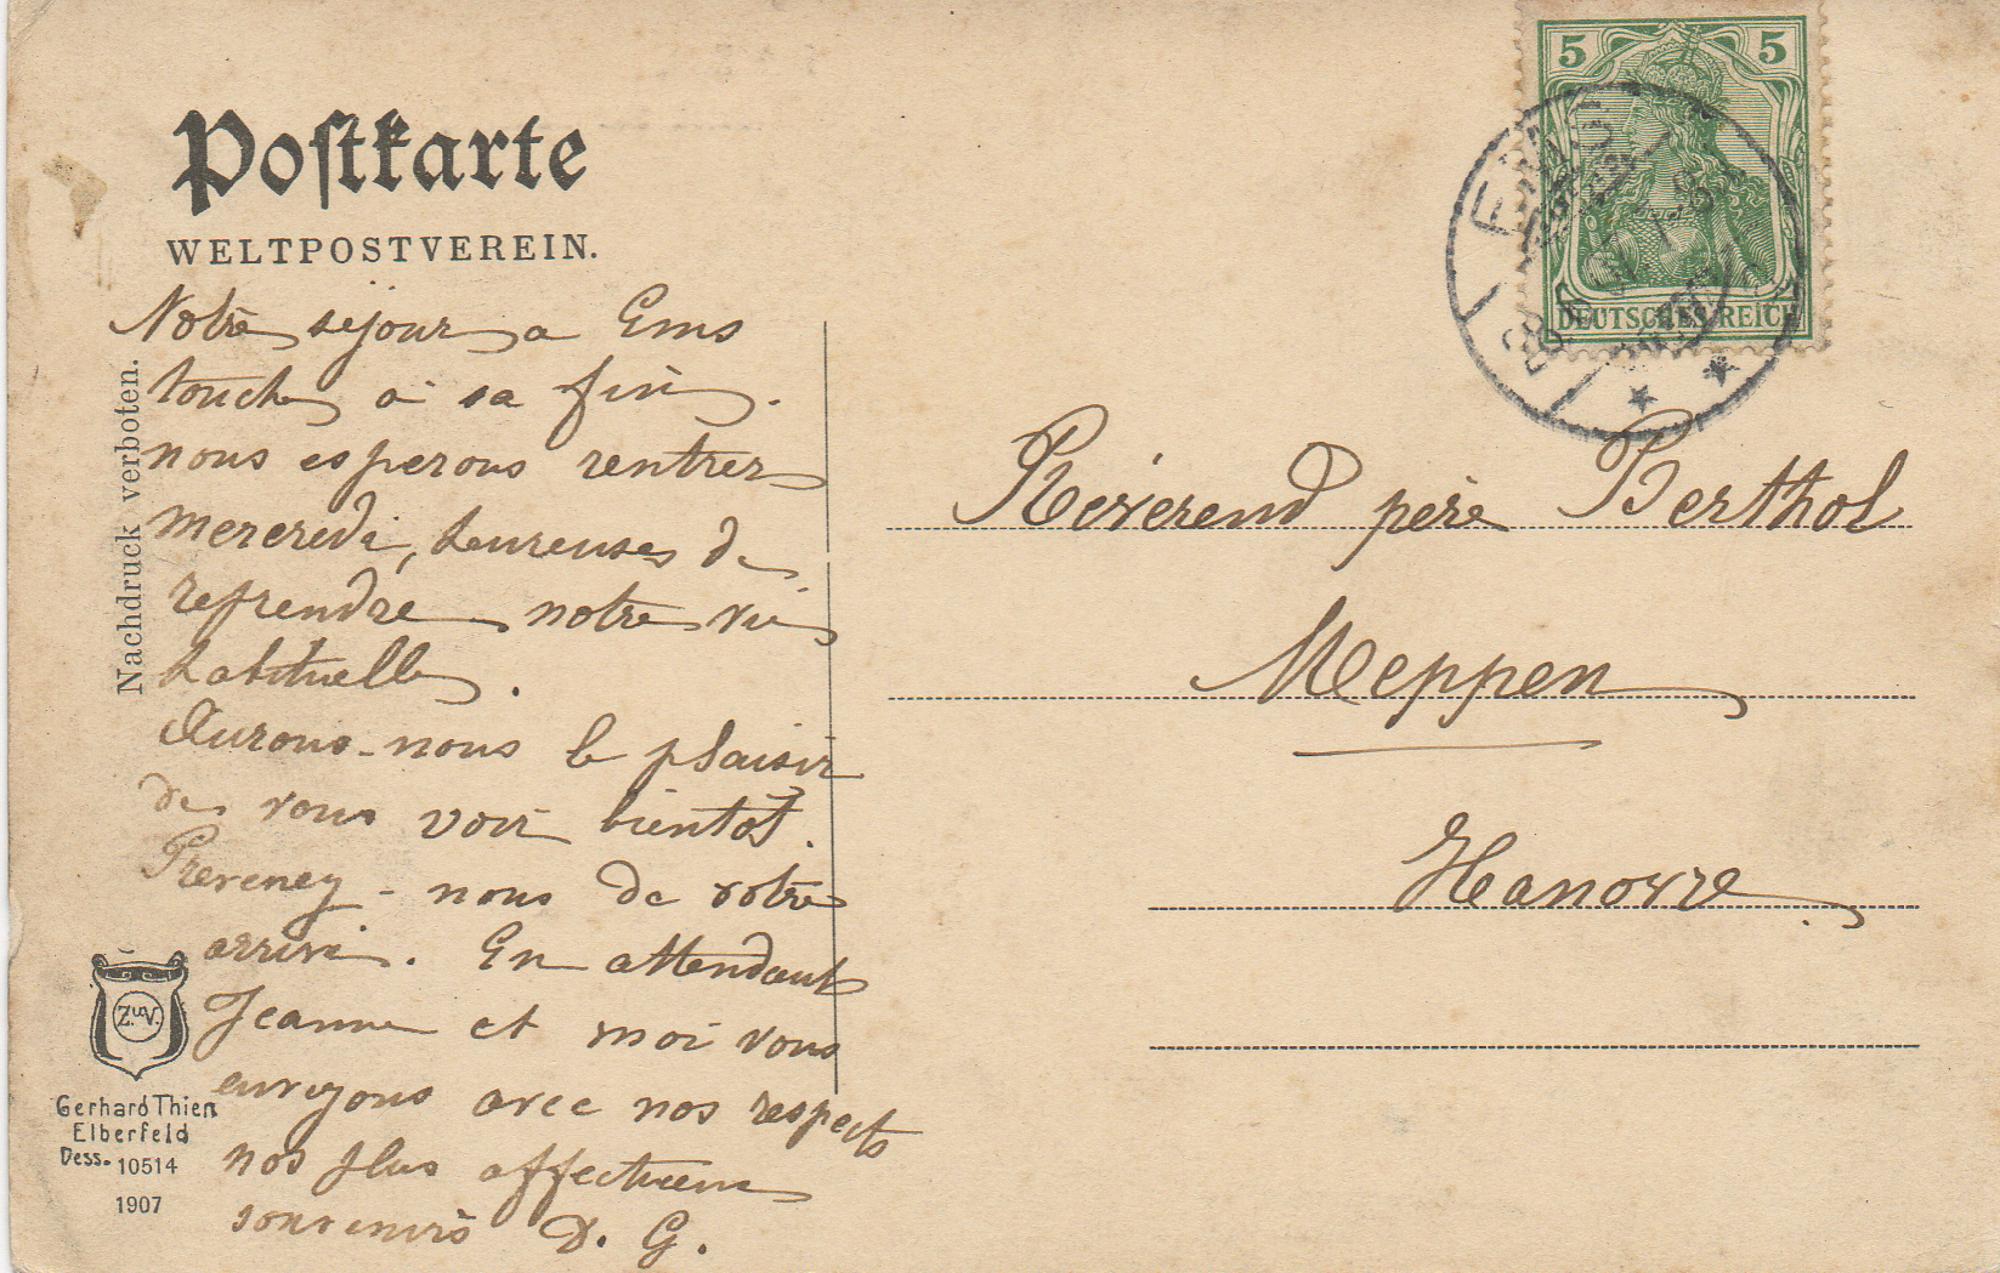 Postkarte
WELTPOSTVEREIN.
Nachdruck verboten.
Notre sejour a Ems
touche à sa fin.
nous esperons rentrer
mercredi, heureuses de
reprendre notre vie
habituelle.
Aurons-nous le plaisir
de vous voir bientôt.
Preveney-nous de votre
arrivé. En attendant
Jeanne et moi vous
envoyons avec nos respects
nos plus affectueux
souvenirs D. G.
Z.uV.
Gerhard Thien
Elberfeld
Dess. 10514
1907
5 5
DEUTSCHES REICH
EMS
Réverend père Berthol
Meppen
Hanovre